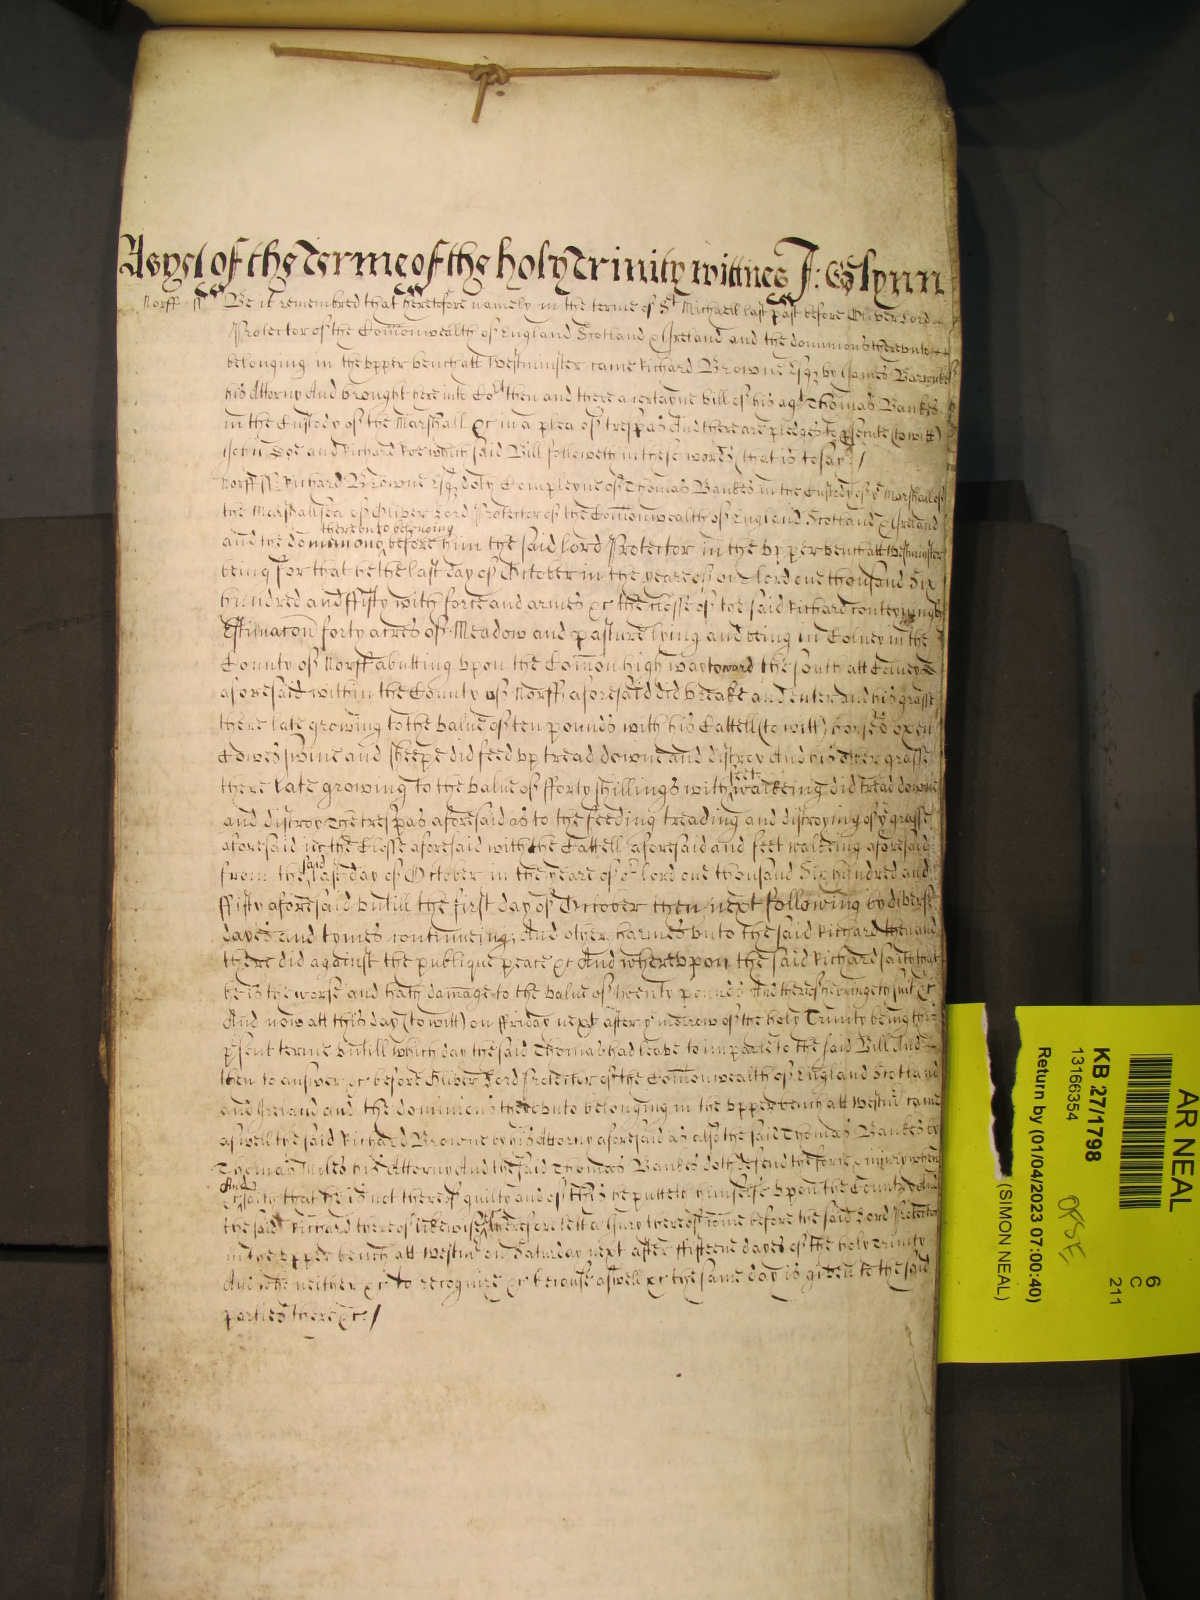 As yet of the Terme of the holy Trinity wittnes J: Glynn
Norff ss Be it remembred that heretofore namely in the terme of St Michaell last past before Oliver Lord
Protector of the Comonwealth of England Scotland & Ireland and the dominions thereunto
belonging in the upper bench att Westminster came Richard Browne Esqr by James
his Attorny And brought here into Cort then and there a certayne bill of his agt Thomas Bankes
in the Custody of the Marshall &c in a plea of trespas And there are pledges to psecute (to witt)
John Doe and Richard Roe which said Bill followeth in these words (that is to say) /
Norff ss Richard Browne Esqr doth Complayne of Thomas Bankes in the Custody of ye Marshall of
the Marshallsea of Oliver Lord Protector of the Comonwealth of England Scotland & Ireland
thereunto belonging
and the dominions before him the said lord Protector in the upper bench att Westminster
being for that he the last day of October in the yeare of our lord one thousand Six
hundred and ffifty with force and armes &c the closse of the said Richard conteyning by
Estimacon forty acres of Meadow and pasture lying and being in Colney in the
County of Norff abutting upon the Comon high way toward the south att Colney
aforesaid within the County of Norff aforesaid did breake and enter and his grasse
there late growing to the value of ten pounds with his Cattell (to witt) horses oxen
Cowes swine and sheepe did feed up tread downe and distroy And his other grasse
feet
there late growing to the value of fforty shillings with walkeing did tread downe
and distroy The trespas aforesaid as to the feeding treading and distroying of ye grasse
aforesaid in the Closse aforesaid with the Cattell aforesaid and feet walkeing aforesaid
said
from the last day of October in the yeare of or lord one thousand Six hundred and
ffifty aforesaid untill the first day of October then next following by diverse
dayes and tymes continueing; And other harmes unto the said Richard then and
there did against the publique peace &c And whereupon the said Richard saith that
he is the worse and hath damage to the value of twenty pounds And thereof he bringeth suit &c
And now att this day (to witt) on ffriday next after ye morrow of the holy Trinity being this
psent terme untill which day the said Thomas had leave to imparle to the said Bill And
then to answer &c before Oliver Lord Protector of the Comonwealth of England Scotland
and Ireland and the dominions thereunto belonging in the upper bench att Westmr came
aswell the said Richard Browne by his Attorny aforesaid as also the said Thomas Bankes by
Thomas Miles his Attorny And the said Thomas Bankes doth defend the force & injury when
And
&c saith that he is not thereof guilty and of this he putteth himselfe upon the Countrey And
the said Richard thereof likewise Therefore lett a Jury thereof come before the said Lord Protector
in the upper bench att Westmr on Saturday next after ffifteene dayes of the holy Trinity
And who neither &c to recognize &c because aswell &c the same day is given to the said
parties there &c: /
AR NEAL
KB 27/1798
13166354
Return by (01/04/2023 07:00:40)
(SIMON NEAL)
6
C
211